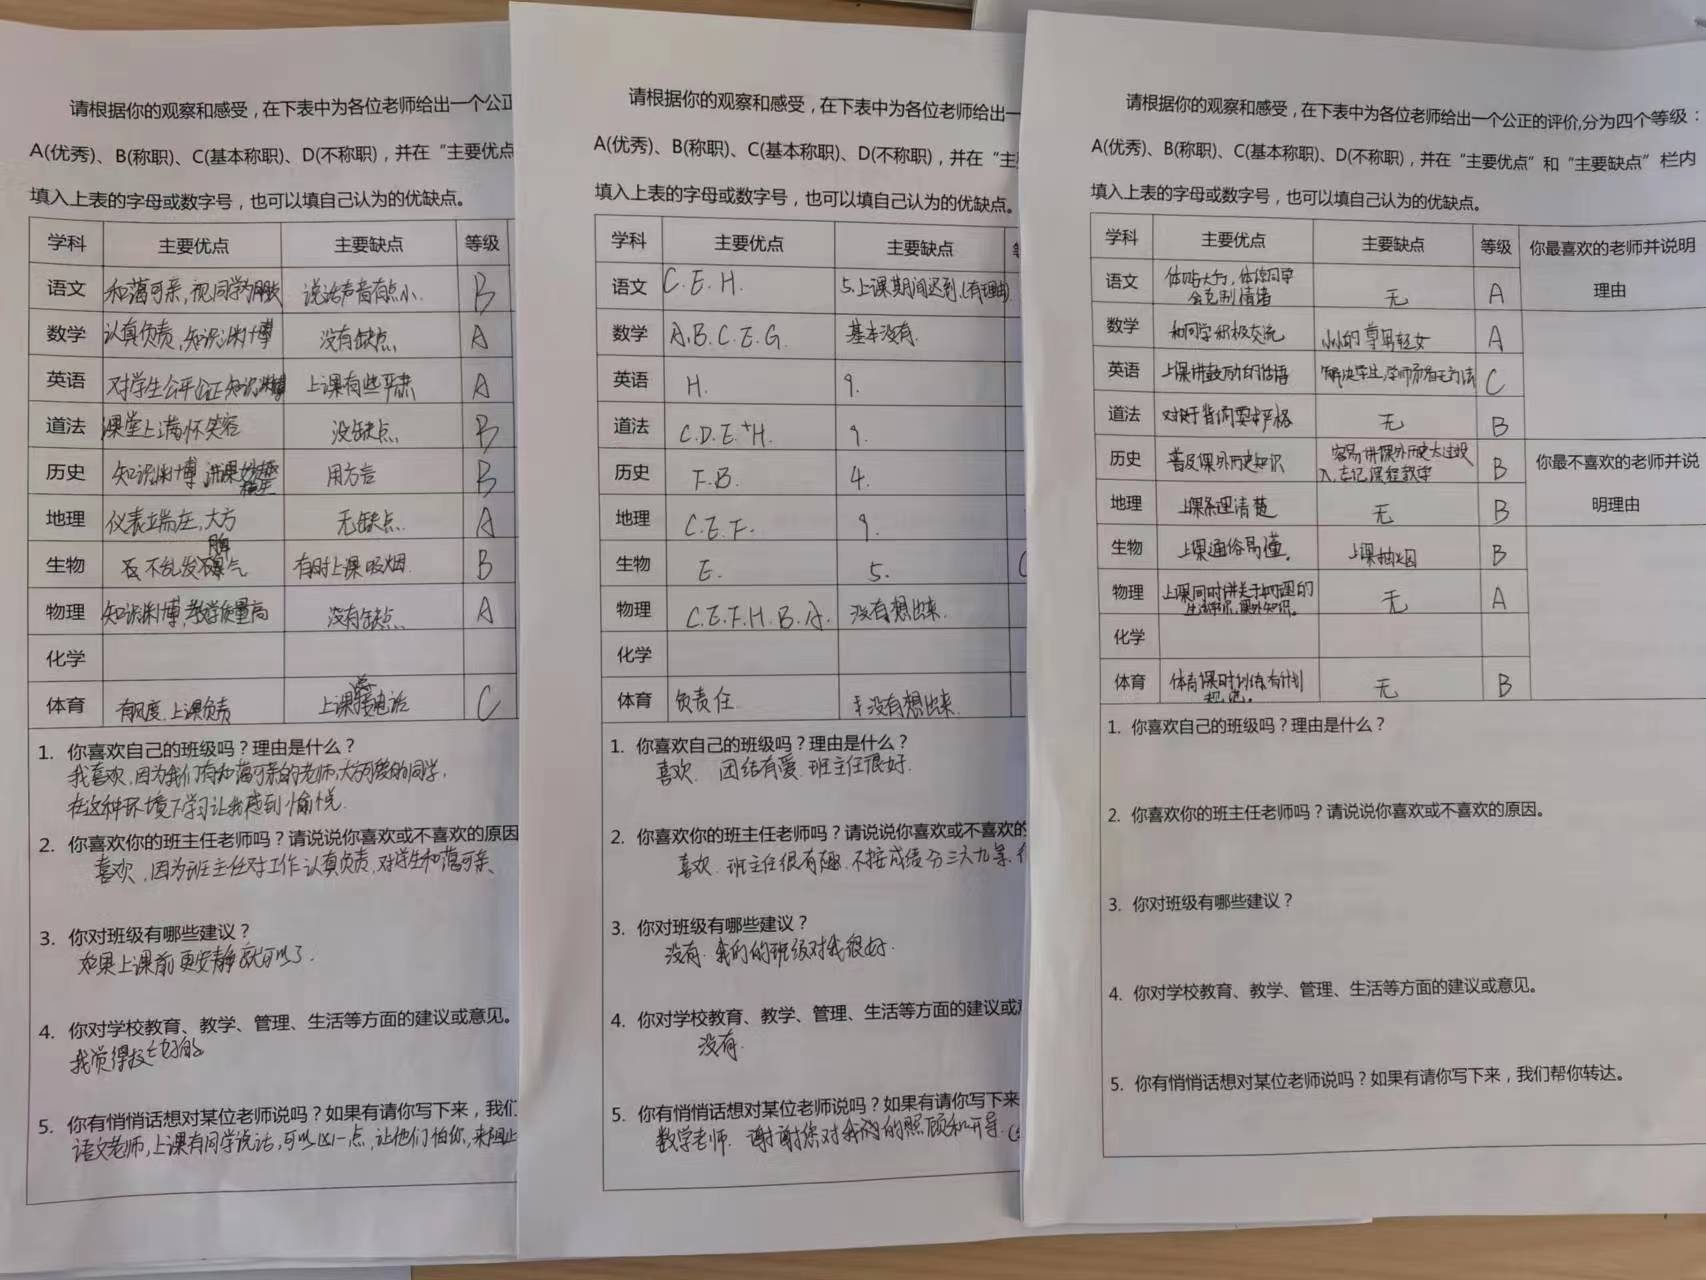 请根据你的观察和感受，在下表中为各位老师给出一个公正
A(优秀)、B(称职)、C(基本称职)、D(不称职)，并在“主要优点
填入上表的字母或数字号，也可以填自己认为的优缺点。
学科 主要优点 主要缺点 等级
语文 和蔼可亲,视同学为朋友 说话声音有点小. B
数学 认真负责,知识渊博 没有缺点 A
英语 对学生公平公正 知识渊博 上课有些严肃 A
道法 课堂上满怀笑容 没缺点. B
历史 知识渊博 讲课 用方言 B
地理 仪表端庄,大方 无缺点. A
生物 不乱发脾气 有时上课吸烟. B
物理 知识渊博,教学质量高 没有缺点 A
化学
体育 有风度,上课负责 上课接电话 C
1. 你喜欢自己的班级吗？理由是什么？
我喜欢,因为我们有和蔼可亲的老师,大方可爱的同学,
在这种环境下学习让我感到愉悦.
2. 你喜欢你的班主任老师吗？请说说你喜欢或不喜欢的原因
喜欢,因为班主任对工作认真负责,对学生和蔼可亲、
3. 你对班级有哪些建议？
如果上课前更安静就可以了.
4. 你对学校教育、教学、管理、生活等方面的建议或意见。
我觉得挺好的
5. 你有悄悄话想对某位老师说吗？如果有请你写下来，我们
语文老师,上课有同学说话,可以凶一点,让他们怕你,来阻止
请根据你的观察和感受，在下表中为各位老师给出一
A(优秀)、B(称职)、C(基本称职)、D(不称职)，并在“主
填入上表的字母或数字号，也可以填自己认为的优缺点。
学科 主要优点 主要缺点
语文 C.E.H. 5.上课期间迟到.(有理由)
数学 A.B.C.E.G. 基本没有.
英语 H. 9.
道法 C.D.E.H. 9.
历史 F.B. 4.
地理 C.E.F. 9.
生物 E. 5.
物理 C.E.F.H.B.A. 没有想出来.
化学
体育 负责任 没有想出来.
1. 你喜欢自己的班级吗？理由是什么？
喜欢. 团结有爱.班主任很好.
2. 你喜欢你的班主任老师吗？请说说你喜欢或不喜欢的
喜欢.班主任很有趣.不按成绩分三六九等.
3. 你对班级有哪些建议？
没有.我们的班级对我很好.
4. 你对学校教育、教学、管理、生活等方面的建议或
没有.
5. 你有悄悄话想对某位老师说吗？如果有请你写下来
数学老师. 谢谢您对我们的照顾和开导.
请根据你的观察和感受，在下表中为各位老师给出一个公正的评价,分为四个等级：
A(优秀)、B(称职)、C(基本称职)、D(不称职)，并在“主要优点”和“主要缺点”栏内
填入上表的字母或数字号，也可以填自己认为的优缺点。
学科 主要优点 主要缺点 等级 你最喜欢的老师并说明
理由
语文 体贴大方,体谅同学
会克制情绪 无 A
数学 和同学积极交流 小小的重男轻女 A
英语 上课讲鼓励的话语 C
道法 对于背诵要求严格 无 B
历史 普及课外历史知识 容易讲课外历史太过投
入,忘记课程教学 B 你最不喜欢的老师并说
明理由
地理 上课条理清楚 无 B
生物 上课通俗易懂. 上课抽烟 B
物理 上课同时讲关于物理的
生活常识,课外知识. 无 A
化学
体育 体育课时训练有计划 无 B
1. 你喜欢自己的班级吗？理由是什么？
2. 你喜欢你的班主任老师吗？请说说你喜欢或不喜欢的原因。
3. 你对班级有哪些建议？
4. 你对学校教育、教学、管理、生活等方面的建议或意见。
5. 你有悄悄话想对某位老师说吗？如果有请你写下来，我们帮你转达。